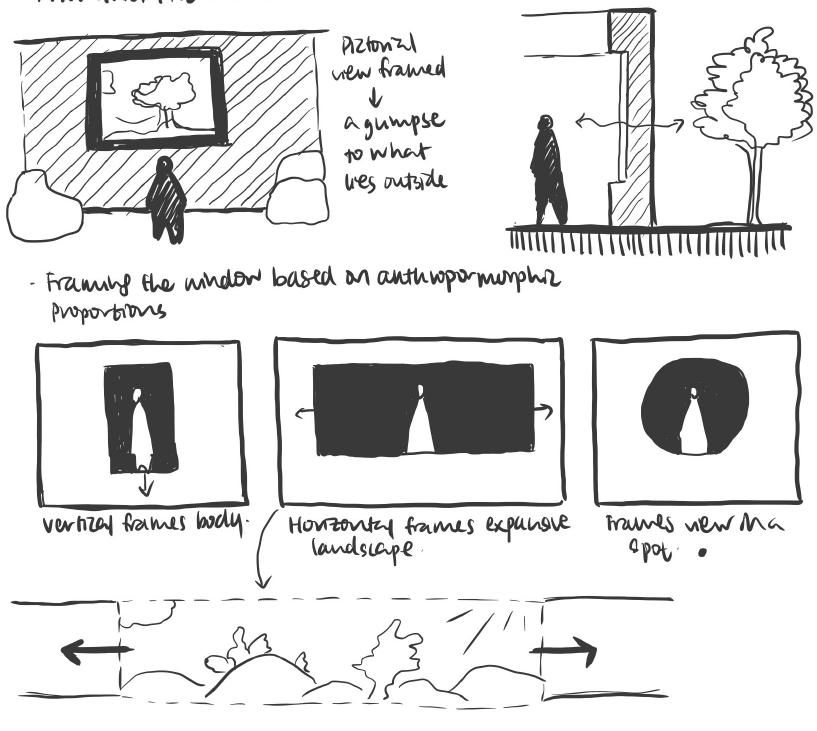 Pictorial
view framed
a glimpse
to what
lies outside
- Framing the window based on anthropormorphic
proportions
vertical frames body.
Horizontal frames expansive
landscape.
Frames view in a
spot.